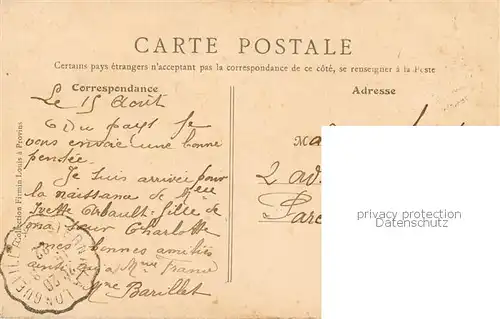 CARTE POSTALE
Certains pays étrangers n'acceptant pas la correspondance de ce côté, se renseigner à la Poste
Correspondance
Adresse
Le 15 Août
Du pays je
vous envoie une bonne
pensée.
Je suis arrivée pour
la naissance de Mlle
Yvette Thibault fille de
ma sœur Charlotte
mes bonnes amitiés
ainsi qu'à Mme France
Barillet
2
Collection Firmin Louis à Provins
LONGUEVILLE
privacy protection
Datenschutz